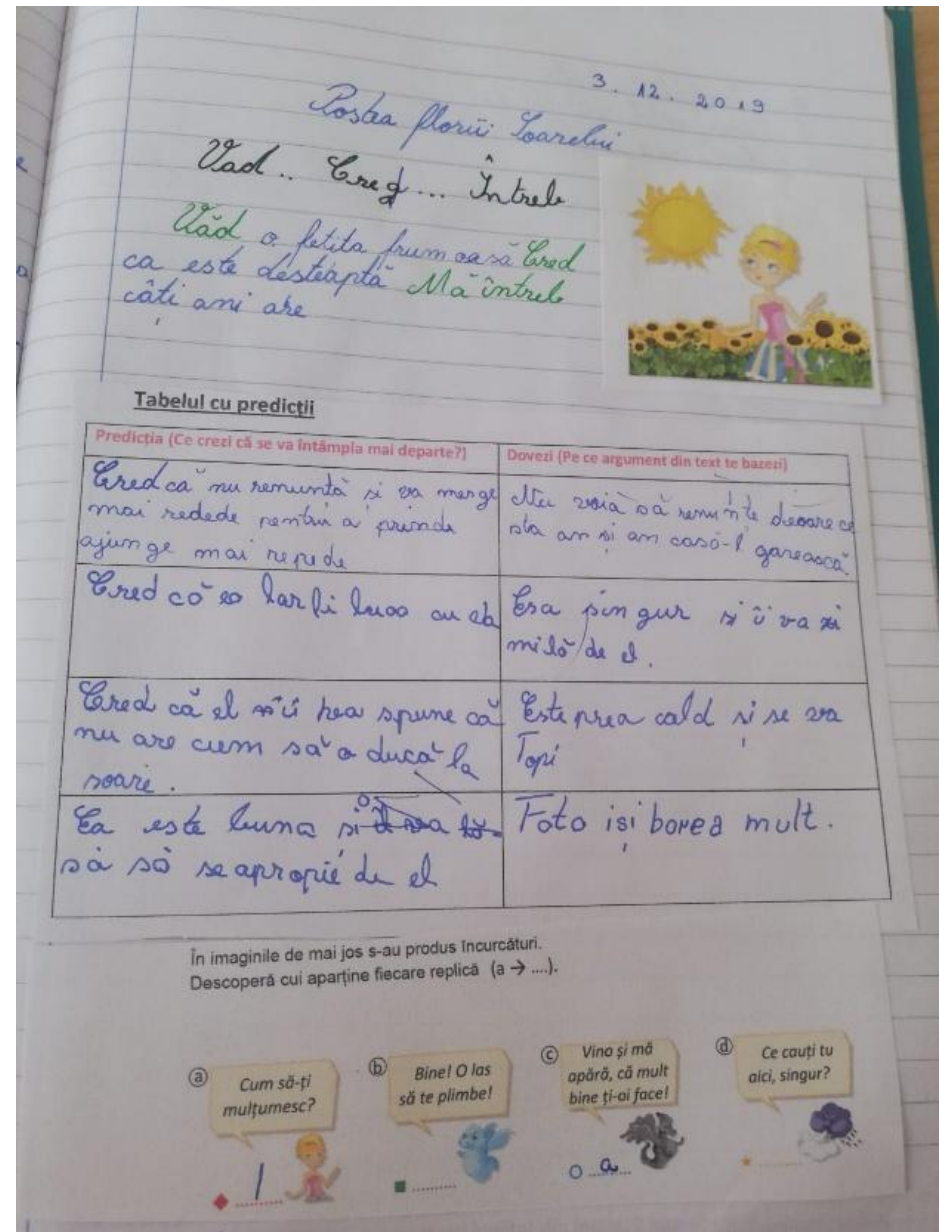 3. 12. 2019
Postea florii Soarelui
Văd.. Cred... Întreb
Văd o fetita frumoasă Cred
ca este desteaptă Mă întreb
câti ani are
Tabelul cu predicții
Predicția (Ce crezi că se va întâmpla mai departe?)
Dovezi (Pe ce argument din text te bazezi)
Cred că nu renuntă si va merge
mai redede pentru a prinde
ajunge mai repede
Nu voia să renunte deoarece
sta an si an casă-l garească
Cred că
cu ea
singur si îi va
milă de el.
Cred că el spune că
nu are cum să o ducă la
soare.
Este prea cald si se va
Topi
Ea este buna si
să să se apropie de el
Foto isi borea mult.
În imaginile de mai jos s-au produs încurcături.
Descoperă cui aparține fiecare replică (a → ....).
a Cum să-ți
mulțumesc?
b Bine! O las
să te plimbe!
c Vino și mă
apără, că mult
bine ți-oi face!
d Ce cauți tu
aici, singur?
1
a